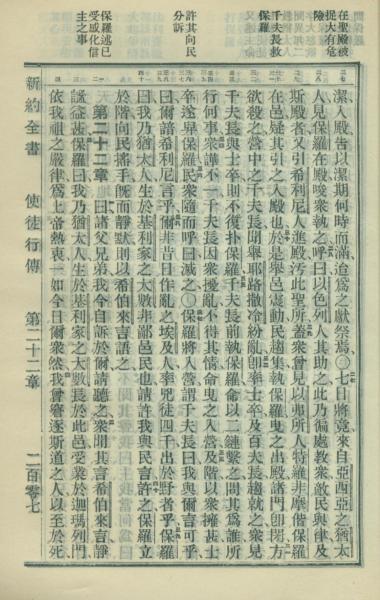 在聖殿被
捉大有危
險
千夫長救
保羅
許其向民
分訴
保羅述已
受感化信
主之事
潔入殿告以潔期何時而滿迨爲之獻祭焉〇七日將竟來自亞西亞之猶太
人見保羅在殿唆衆執之呼曰以色列人其助之此乃徧處教衆敵民與律及
斯殿者又引希利尼人進殿汚此聖所蓋衆曾見以弗所人特羅非摩偕保羅
在邑疑其引之入殿也於是舉邑震動民趨集執保羅曳之出殿諸門卽閉方
欲殺之營中之千夫長聞舉耶路撒冷紛亂卽率士卒及百夫長趨就之衆見
千夫長與士卒則不復扑保羅千夫長前執保羅命以二鏈繫之問其爲誰所
行何事衆譁不一千夫長因衆擾亂不得其情命曳之入營及階以衆擁甚士
卒遂舉保羅民衆隨而呼曰滅之〇保羅將入營謂千夫長曰我與爾言可乎
曰爾諳希利尼言乎爾非昔日作亂之埃及人率兇徒四千出於野者乎保羅
曰我乃猶太人生於基利家之大數非鄙邑民也請許我與民言許之保羅立
於階向民搖手旣而靜默則以希伯來言語之
第二十二章 曰諸父兄弟我今自訴於爾請聽之衆聞其言希伯來言靜
謐益甚保羅曰我乃猶太人生於基利家之大數長於此邑受業於迦瑪列門
依我祖之嚴律爲上帝熱衷一如今日爾衆然我曾窘逐斯道之人以至於死
新約全書 使徒行傳 第二十二章 二百零七